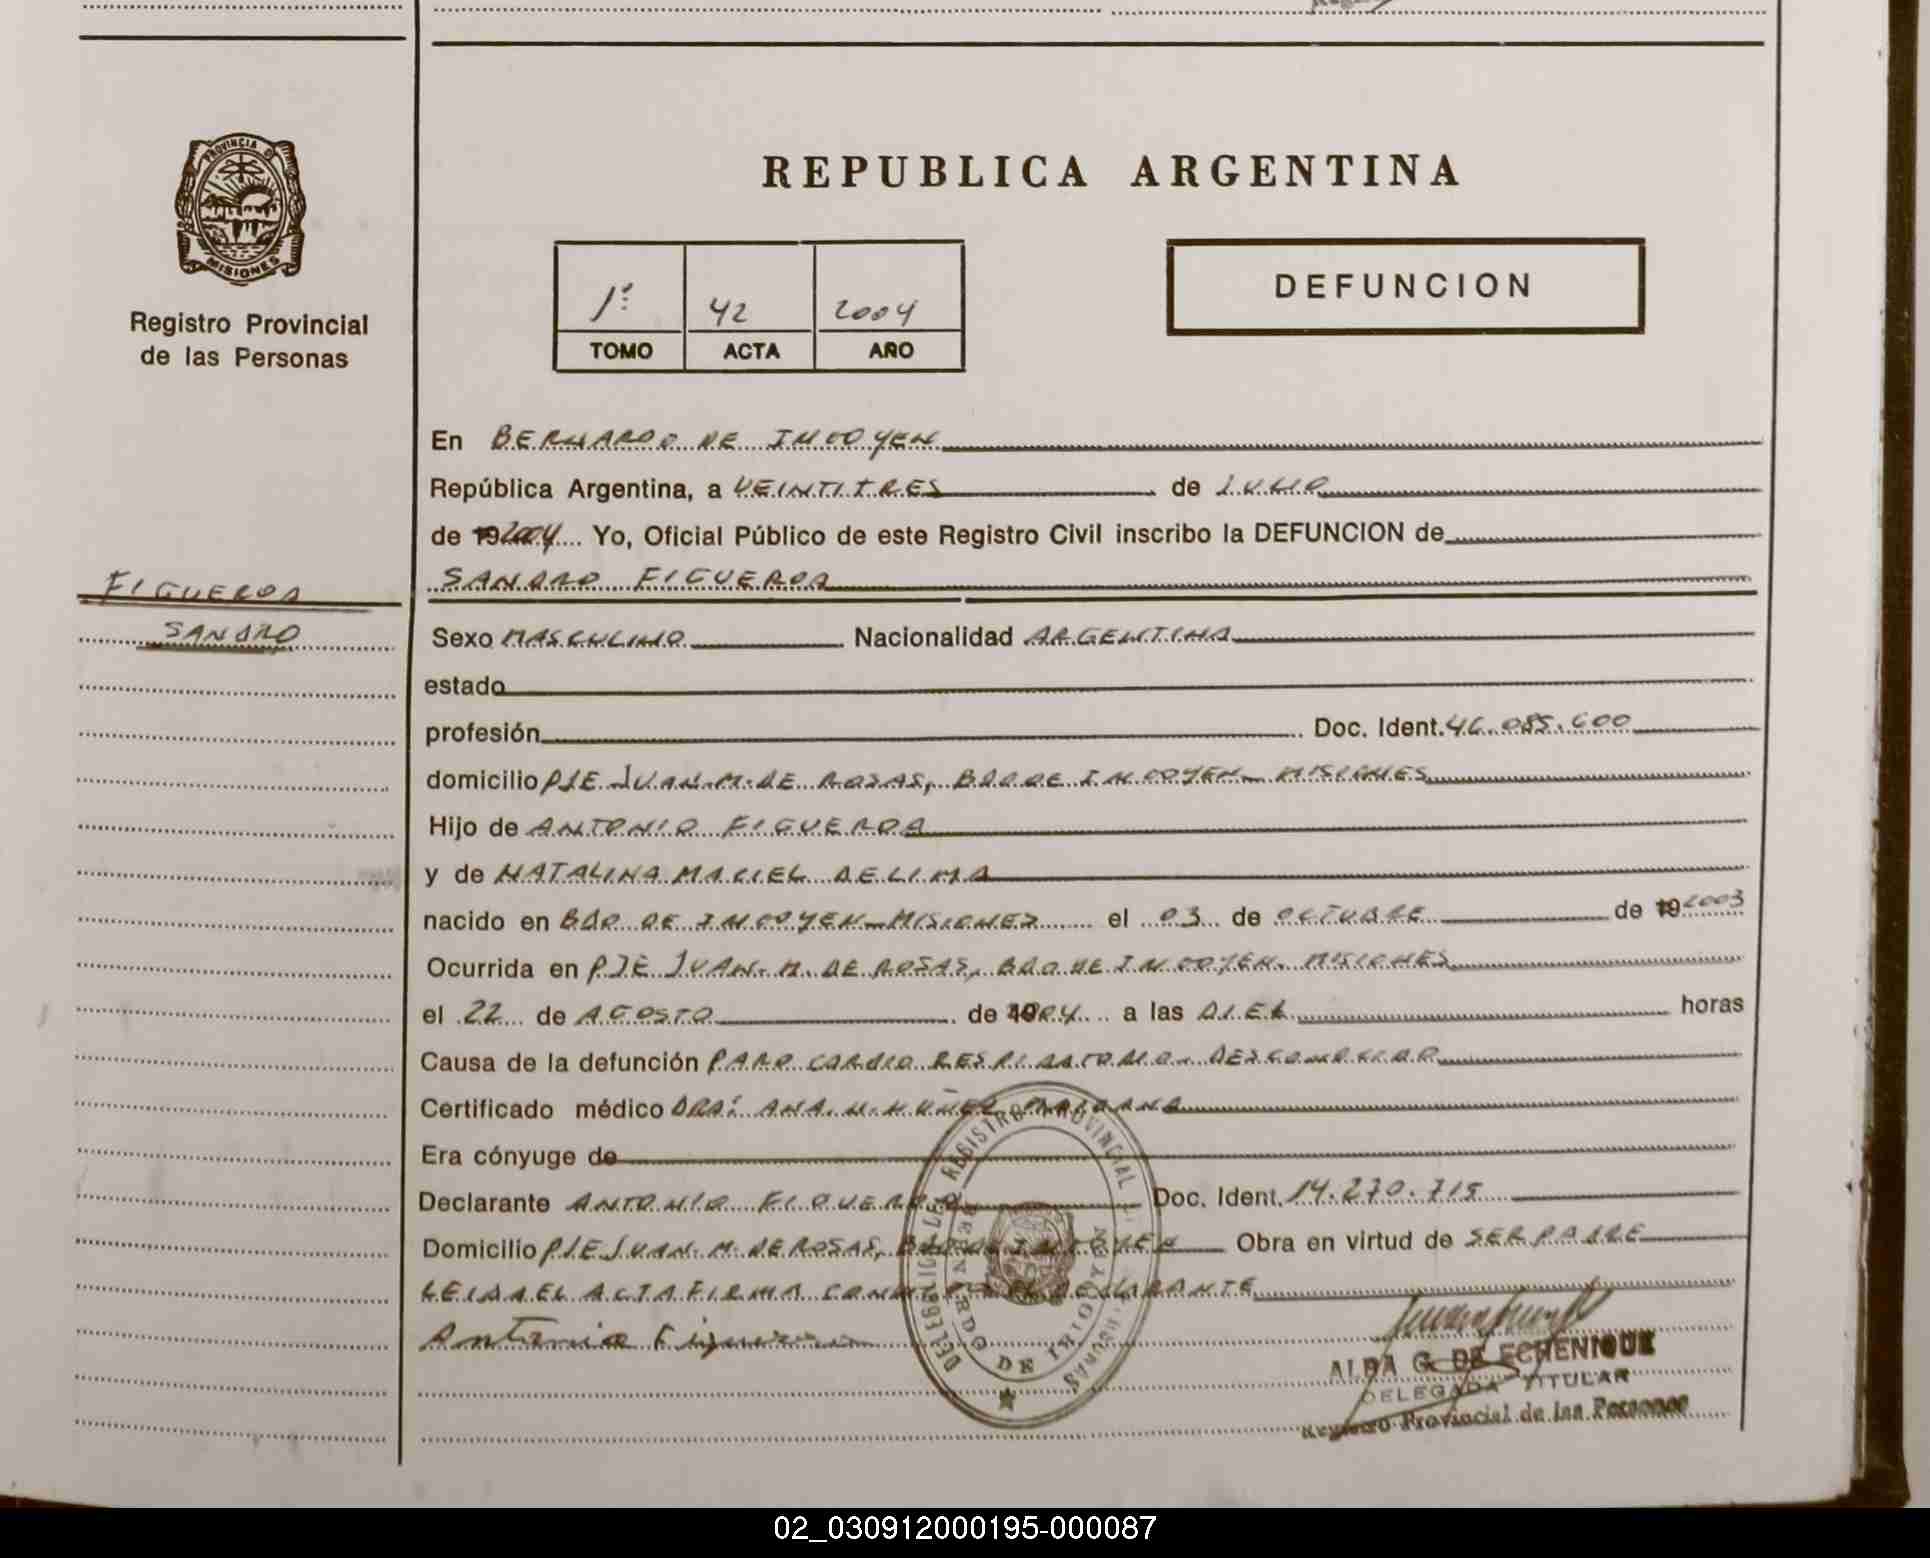 PROVINCIA D
MISIONES
Registro Provincial
de las Personas
REPUBLICA ARGENTINA
1º 42 2004
TOMO ACTA AÑO
DEFUNCION
En BERNARDO DE IRIGOYEN
República Argentina, a VEINTITRES de JULIO
de 19 2004 Yo, Oficial Público de este Registro Civil inscribo la DEFUNCION de
FIGUEROA
SANDRO FIGUEROA
SANDRO
Sexo MASCULINO Nacionalidad ARGENTINA
estado
profesión Doc. Ident. 46.085.600
domicilio PJE JUAN. M. DE ROSAS, BDO DE IRIGOYEN - MISIONES
Hijo de ANTONIO FIGUEROA
y de NATALINA MACIEL DE LIMA
nacido en BDO DE IRIGOYEN - MISIONES el 03 de OCTUBRE de 19 2003
Ocurrida en PJE JUAN. M. DE ROSAS, BDO DE IRIGOYEN. MISIONES
el 22 de AGOSTO de 2004 a las DIEZ horas
Causa de la defunción PARO CARDIO RESPIRATORIO. DESCONOCIDO
Certificado médico DRA: ANA. N. NUÑEZ
Era cónyuge de
Declarante ANTONIO FIGUEROA Doc. Ident. 14.270.715
Domicilio PJE JUAN. M. DE ROSAS, BDO DE IRIGOYEN Obra en virtud de SER PADRE
LEIDA EL ACTA FIRMA CONMIGO EL DECLARANTE
Antonio Figueroa
DELEG REGISTRO PROVINCIAL
BERNARDO DE IRIGOYEN
ALBA G. DE ECHENIQUE
DELEGADA TITULAR
Registro Provincial de las Personas
02_030912000195-000087